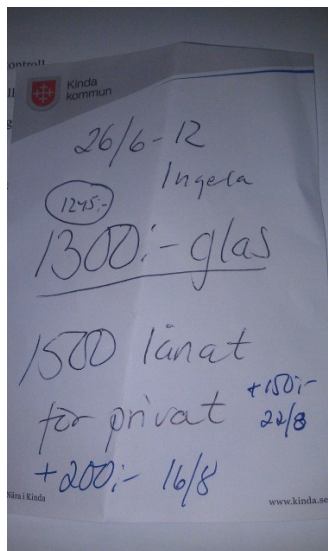 ontroll
Kinda
kommun
26/6-12
Ingela
1245:-
1300:- glas
1500 lånat
för privat
+150:-
22/8
+200:- 16/8
Nära i Kinda
www.kinda.se